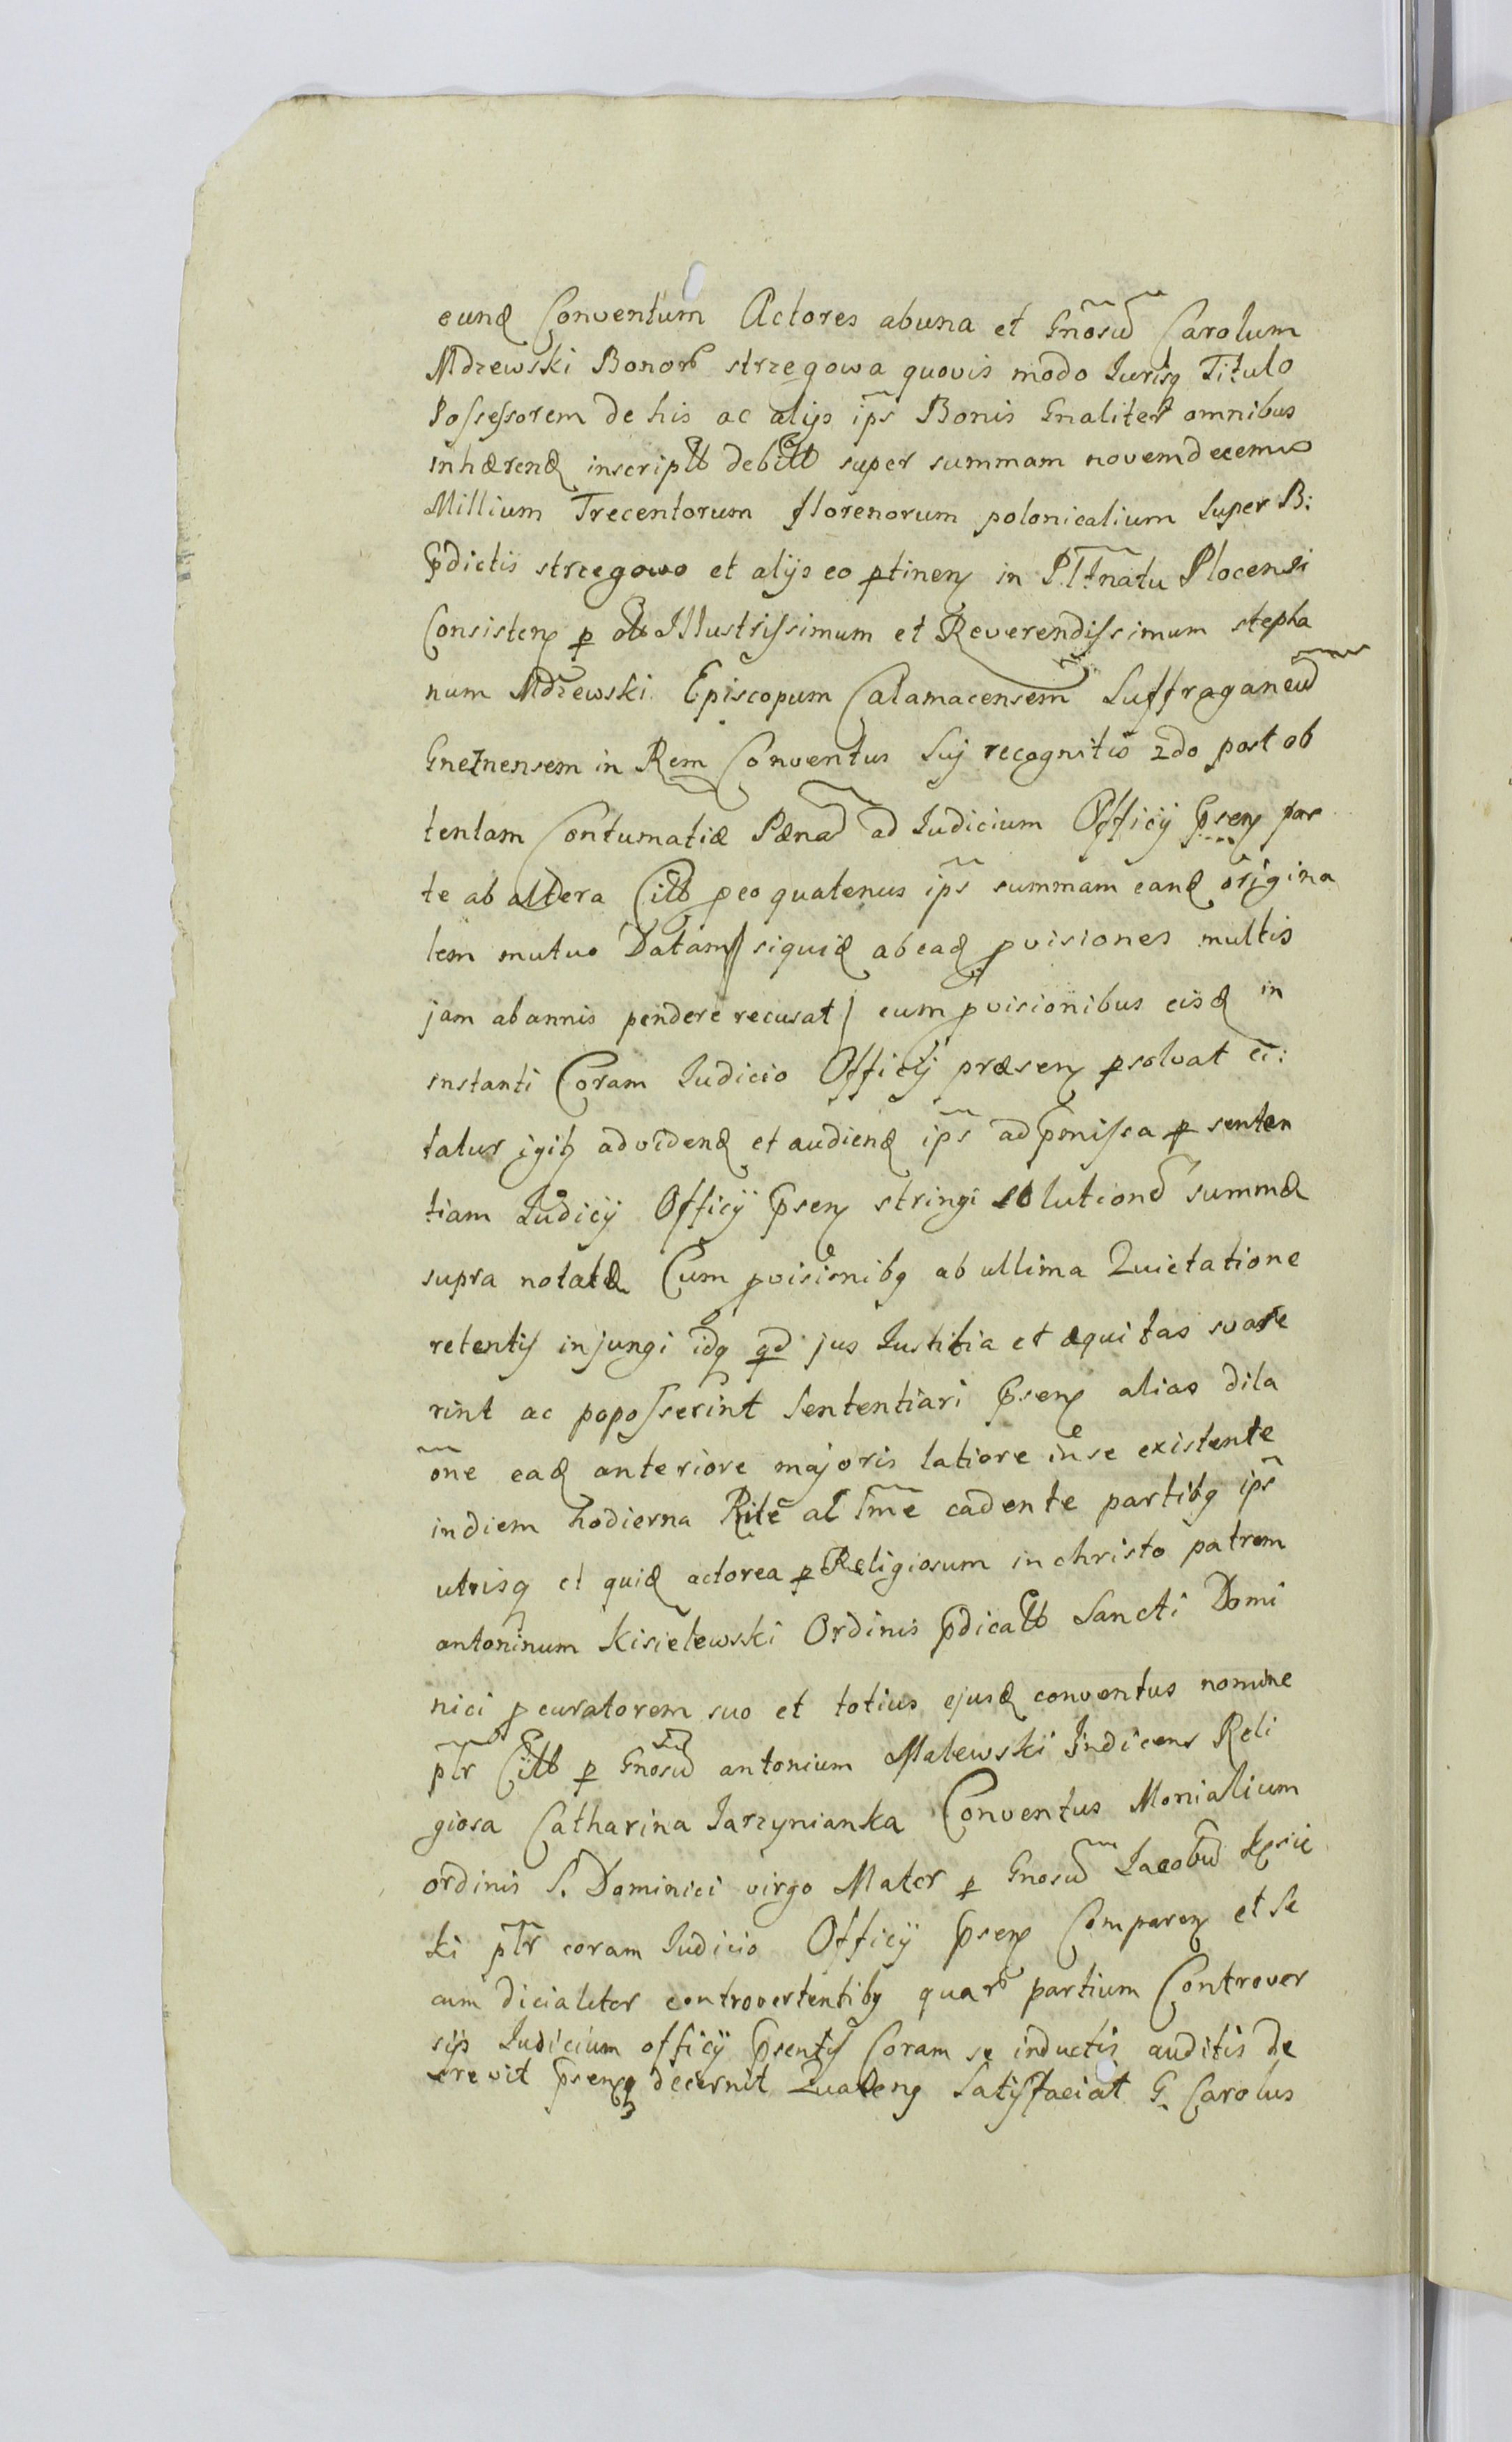 eund Conventum Actores ab una et Gñosũ Carolum
Mdzewski Bonor strzegowa quovis modo Jurisq Titulo
Possessorem de his ac alijs ip̃s Bonis Gnaliter omnibus
inhærend inscript debitt super summam novemdecem
Millium Trecentorum florenorum polonicalium Super B:
Pdictis strzegowo et alijs eo ptinen in Pltnatu Plocensi
Consisten p olb Illustrissimum et Reverendissimum stepha
num Mdzewski Episcopum Calamacensem Suffraganeũ
Gneznensem in Rem Conventus Sui recognitio 2do post ob
tentam Contumatiæ Pænã ad Judicium Officij Psen par
te ab altera Citt p eo quatenus ip̃s summam eand origina
lem mutuo Datam / siquid ab ead pvisiones multis
jam ab annis pendere recusat / cum pvisionibus eisd in
instanti Coram Judicio Officij præsen psolvat ci:
tatur igitʒ ad vidend et audiend ip̃s ad pmissa p senten
tiam Judicij Officij Psen stringi solutionẽ summæ
supra notatæ Cum pvisionibq ab ultima Quietatione
retentis injungi idq qd jus Justitia et æquitas svase
rint ac poposserint Sententiari Psen alias dila
õne ead anteriore majoris latiore in se existente
in diem hodierna Rite al lm̃e cadente partibq ip̃s
utrisq et quid actorea p Religiosum in christo patrem
antoninum Kisielewski Ordinis Pdicatt Sancti Domi
nici pcuratorem suo et totius ejusd conventus nomine
pl̃r Citt p Gnosũ antonium Malewski Judicens Reli
giosa Catharina Jarzynianka Conventus Monialium
ordinis S. Dominici virgo Mater p Gnosũ Jacobũ
ki pl̃r coram Judicio Officij Psen Comparen et Se
cum dicialiter controvertentibq quar partium Controver
sijs Judicium officij Psentis Coram se inductis auditis de
crevit Psenq decernit Quateng Satisfaciat G. Carolus